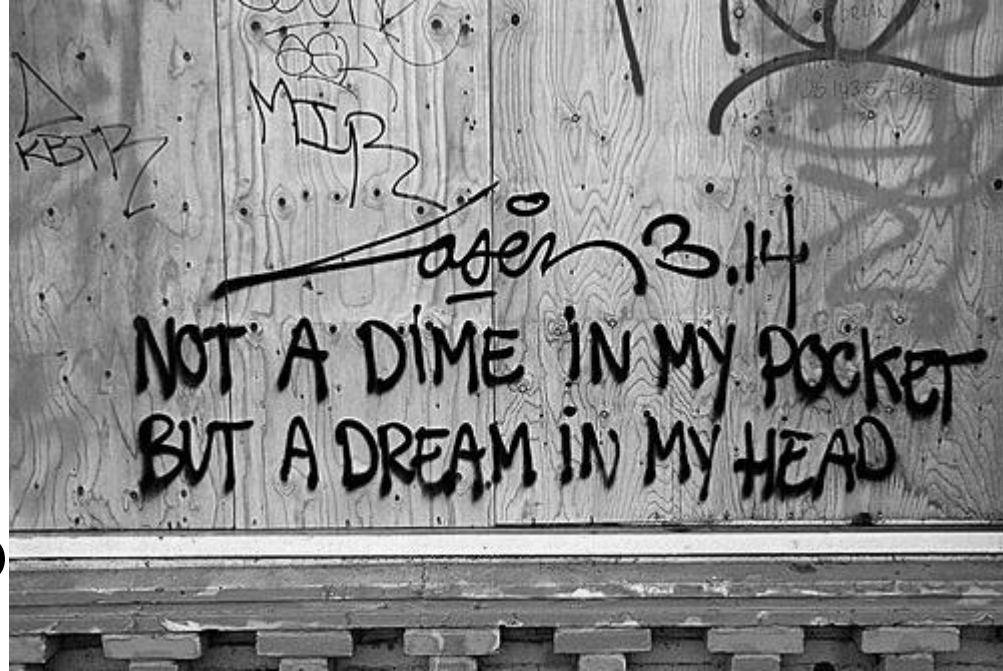 MIR
KBTR
Laser 3.14
NOT A DIME IN MY POCKET
BUT A DREAM IN MY HEAD